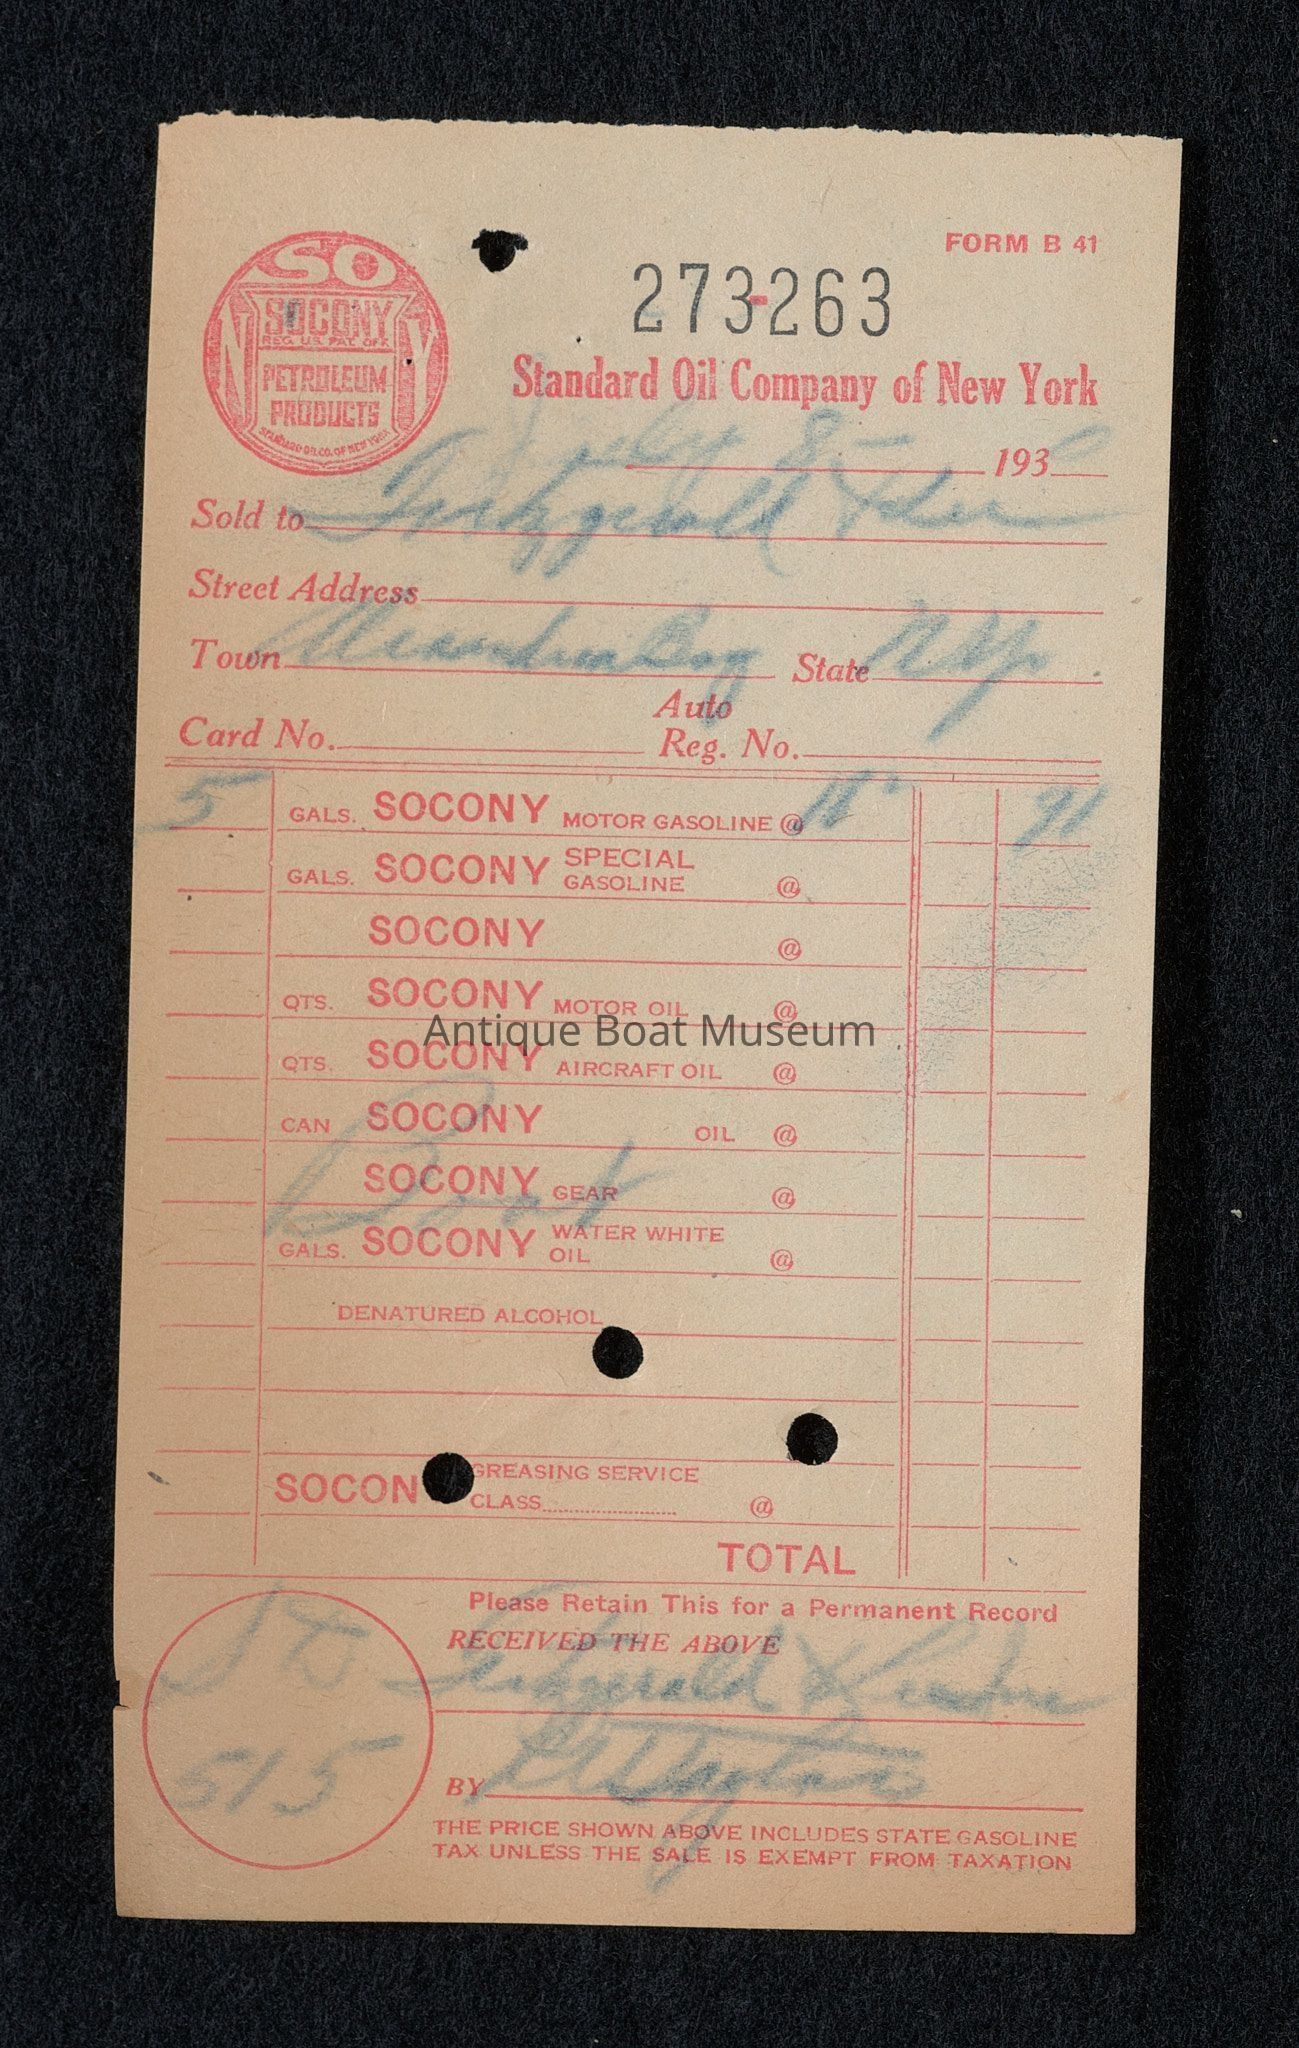 FORM B 41
SO
NY
SOCONY
REG. U.S. PAT. OFF.
PETROLEUM
PRODUCTS
STANDARD OIL CO. OF NEW YORK
273-263
Standard Oil Company of New York
July 8 193
Sold to Fitzgerald &
Street Address
Town Alexandria Bay State NY.
Card No. Auto Reg. No.
5 GALS. SOCONY MOTOR GASOLINE @ 91
GALS. SOCONY SPECIAL GASOLINE @
SOCONY @
QTS. SOCONY MOTOR OIL @
Antique Boat Museum
QTS. SOCONY AIRCRAFT OIL @
CAN SOCONY OIL @
Boat
SOCONY GEAR @
GALS. SOCONY WATER WHITE OIL @
DENATURED ALCOHOL
SOCON GREASING SERVICE
CLASS @
TOTAL
Please Retain This for a Permanent Record
RECEIVED THE ABOVE
Fitzgerald &
515
BY
THE PRICE SHOWN ABOVE INCLUDES STATE GASOLINE
TAX UNLESS THE SALE IS EXEMPT FROM TAXATION